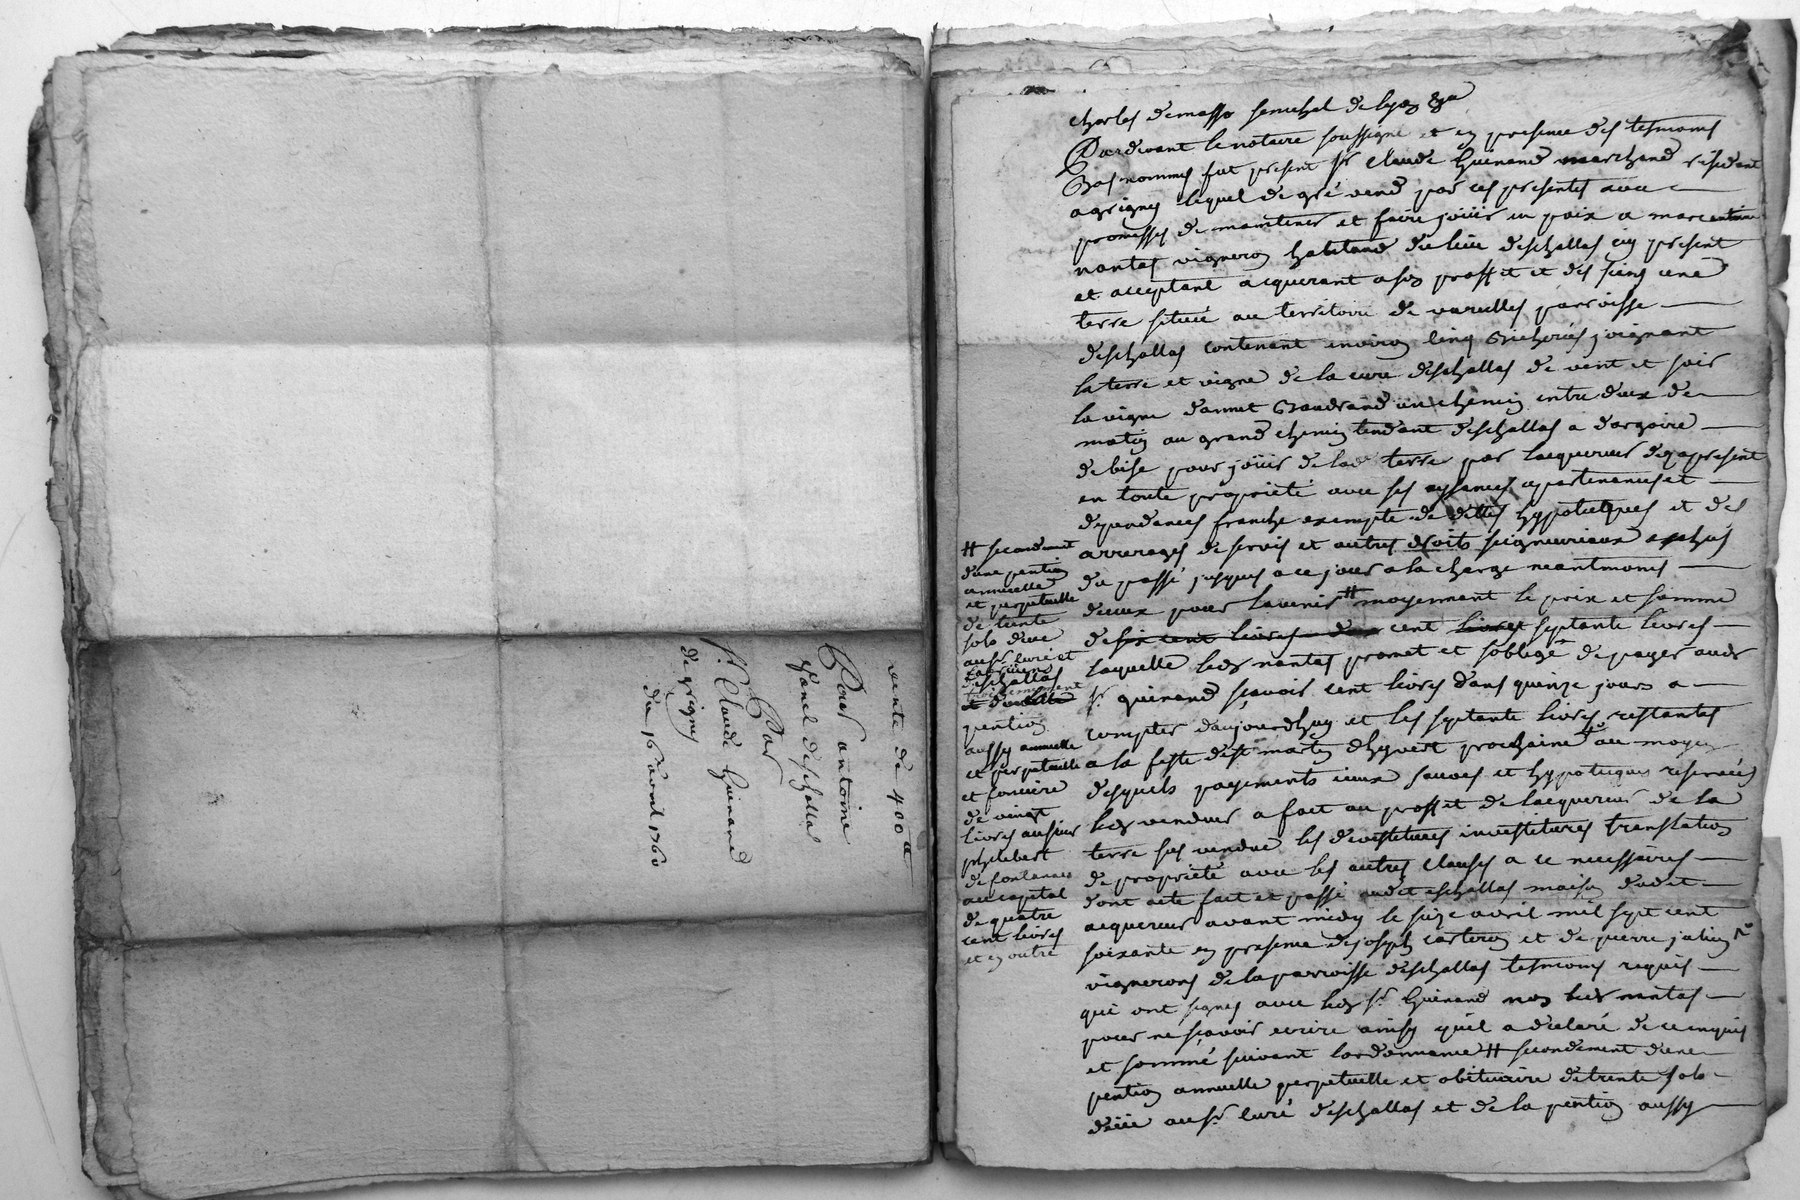 vente de 400 ℔
Pour antoine
Vanel deschallas
Par
Sr. Claude Guinand
de grigny
du 16 avril 1760
Charles demasso senechal de lyon &a
Pardevant le notaire soussigné et en presence des tesmoins
Bas nommes fut present sr Claude Guinand marchand résidant
a grigny lequel de gré vend par ces presentes avec
promesses de maintenir et faire joüir en paix a marc antoine
nantas vigneron habitand du lieu deschallas icy present
et acceptant acquerant a son proffit et des siens une
terre située au territoire de varcilles parroisse
deschallas contenant environ cinq Bicherées joignant
la terre et vigne de la cure deschallas de vent et soir
la vigne dannet Baudrand un chemin entre deux de
matin au grand chemin tendant deschallas a dargoire
de bise pour joüir de lad terre par lacquereur dez apresent
en toute proprieté avec ses aysances apartenances et
dependances franche exempte de dettes hypoteques et des
arrerages de servis et autres droits seigneuriaux eschus
du passé jusques a ce jour a la charge neantmoins
diceux pour lavenir # moyennant le prix et somme
de six cent livres cent livres septante livres
laquelle led nantas promet et soblige de payer aud
sr. guinand sçavoir cent livres dans quinze jours a
compter daujourdhuy et les septante livres restantes
a la feste de st martin dhyvert prochaine au moyen
desquels payements iceux sauves et hypoteques réservées
led vendeur a fait au proffit de lacquereur de la
terre sus vendue les devestitures investitures translation
de proprieté avec les autres clauses a ce necessaires
dont acte fait et passé audit eschallas maison dudit
acquereur avant midy le seize avril mil sept cent
soixante en presence de joseph carteron et de pierre julien
vignerons de la parroisse deschallas tesmoins requis
qui ont signes avec led sr. Guinand non led nantas
pour ne sçavoir ecrire ainsy quil a declaré de ce enquis
et sommé suivant lordonnance # secondement dune
pention annuelle perpetuelle et obituaire de trente sols
düe au sr. curé deschallas et de la pention aussy
# secondement
dune pention
annuelle
et perpetuelle
de trente
sols düe
au sr. curé et
deschallas
pention
aussy annuelle
et perpetuelle
et fonciere
de vingt
livres au sieur
philibert
de fontanes
au capital
de quatre
cent livres
et en outre